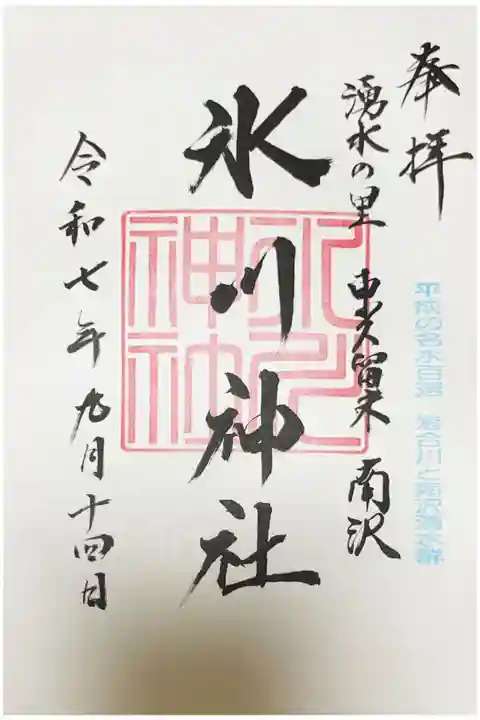 奉拝
湧水の里 東久留米 南沢
平成の名水百選 落合川と南沢湧水群
氷川神社
氷川神社
令和七年九月十四日